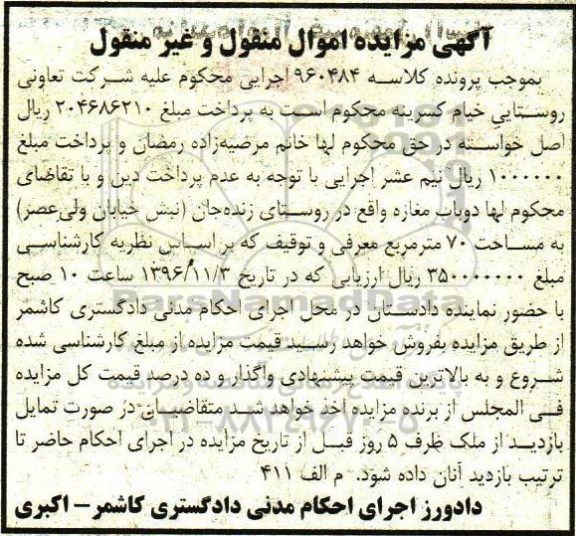 آگهی مزایده اموال منقول و غیر منقول
بموجب پرونده کلاسه ۹۶۰۴۸۴ اجرایی محکوم علیه شرکت تعاونی
روستایی خیام کسرینه محکوم است به پرداخت مبلغ ۲۰۴۶۸۶۲۱۰ ریال
اصل خواسته در حق محکوم لها خانم مرضیه‌زاده رمضان و پرداخت مبلغ
۱۰۰۰۰۰۰ ریال نیم عشر اجرایی با توجه به عدم پرداخت دین و با تقاضای
محکوم لها دوباب مغازه واقع در روستای زنده‌جان (نبش خیابان ولی‌عصر)
به مساحت ۷۰ مترمربع معرفی و توقیف که بر اساس نظریه کارشناسی
مبلغ ۳۵۰۰۰۰۰۰۰ ریال ارزیابی که در تاریخ ۱۳۹۶/۱۱/۳ ساعت ۱۰ صبح
با حضور نماینده دادستان در محل اجرای احکام مدنی دادگستری کاشمر
از طریق مزایده بفروش خواهد رسید قیمت مزایده از مبلغ کارشناسی شده
شروع و به بالاترین قیمت پیشنهادی واگذار و ده درصد قیمت کل مزایده
فی المجلس از برنده مزایده اخذ خواهد شد متقاضیان در صورت تمایل
بازدید از ملک ظرف ۵ روز قبل از تاریخ مزایده در اجرای احکام حاضر تا
ترتیب بازدید آنان داده شود. م الف ۴۱۱
دادورز اجرای احکام مدنی دادگستری کاشمر – اکبری
ParsNamadData
۰۲۱-۸۸۳۴۹۶۷۰-۵